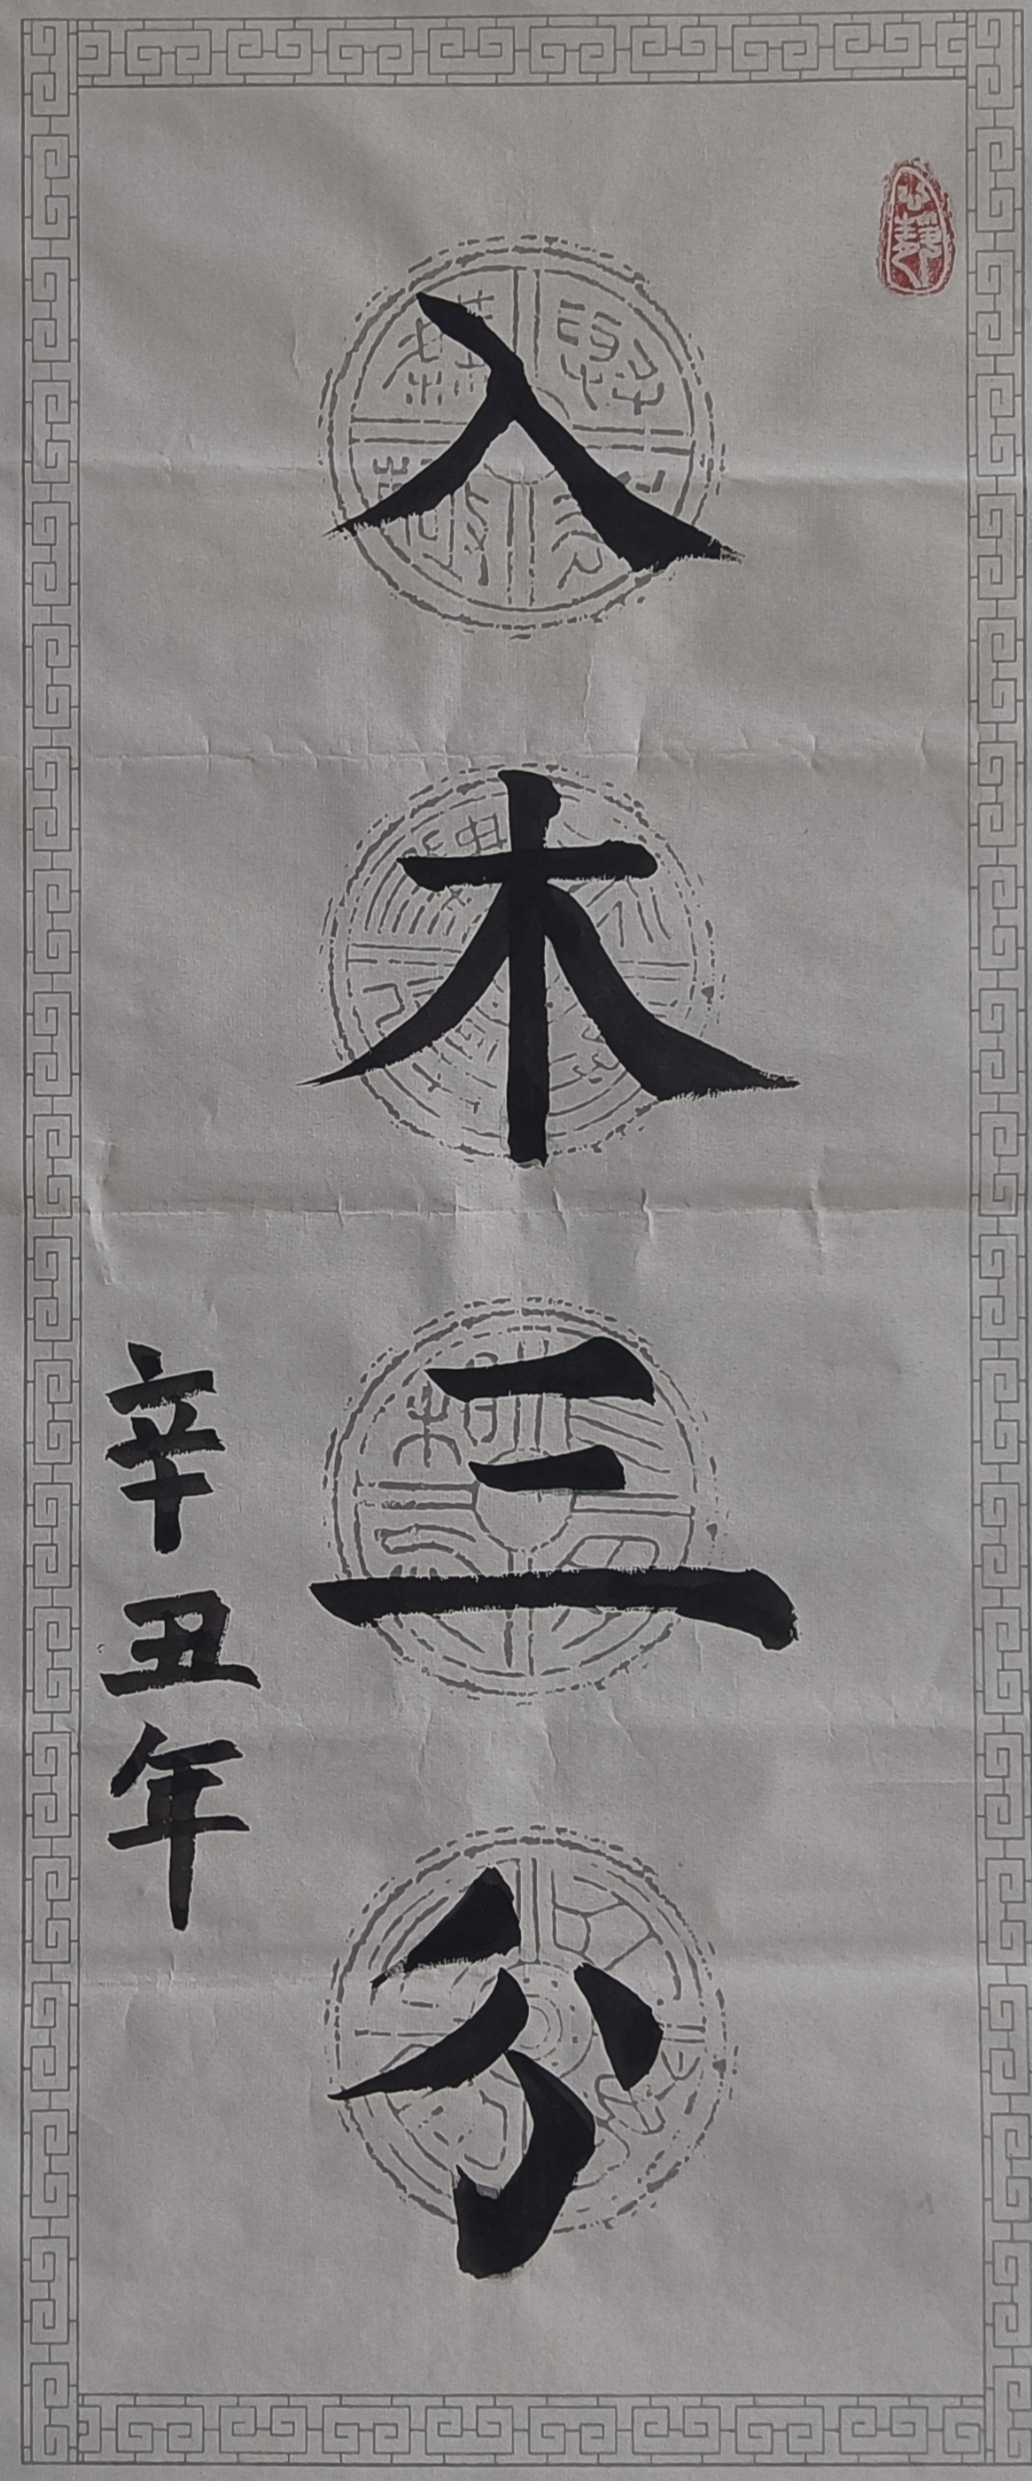 入木三分
辛丑年